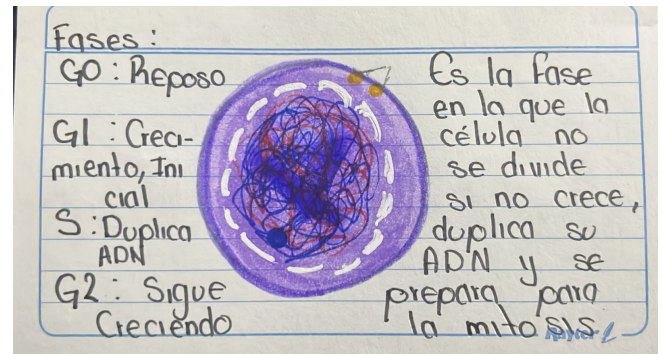 Fases:
G0: Reposo
G1: Creci-
miento, Ini
cial
S: Duplica
ADN
G2: Sigue
Creciendo
Es la fase
en la que la
célula no
se divide
si no crece,
duplica su
ADN y se
prepara para
la mitosis